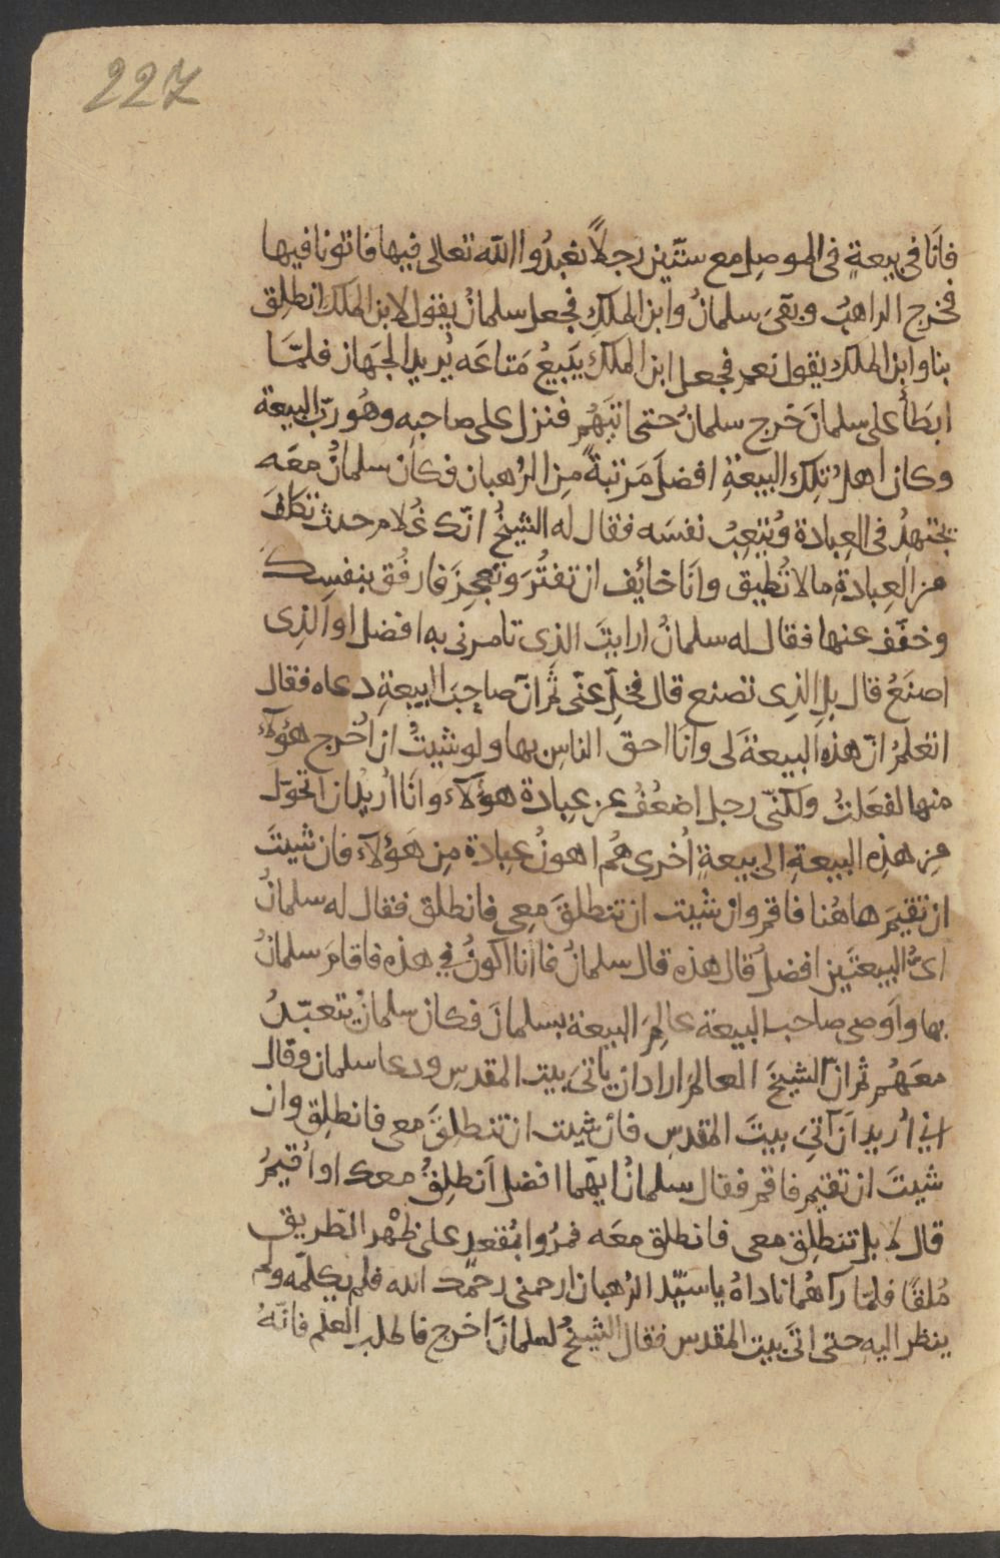 227
فانَا فى بيعةٍ فى الموصِل مع ستّين رجلاً نعبدُوا اللّه تعالى فيها فاتونا فيها
فخرج الراهبُ وبقىَ سلمانُ وابن الملكِ فجعل سلمانُ يقول لابن الملك انطلِق
بنا وابن الملك يقول نعم فجعل ابن الملك يَبيعُ مَتاعَه يُريد الجَهاز فلمّا
ابطَأ على سلمانَ خرج سلمانُ حتى اتَيهُم فنزل على صاحبِه وهُو ربّ البيعة
وكان اهلُ تِلك البيعةِ افضلَ مَرتبةً مِن الرُهبان فكان سلمانُ معَه
يجتهِدُ فى العِبادة ويُتعِبُ نفسَه فقال له الشيخُ انّك غُلام حدث تكلّفَ
من العِبادةِ مالا تُطيق وانَا خائِف ان تفتُرَ وتعجِزَ فارفُق بنفسِك
وخفّف عنها فقال له سلمانُ ارايتَ الذى تامرنى به افضل او الذِى
اصنَعُ قال بلِ الذِى تصنع قال فخلِّ عنّى ثم انّ صاحِبَ البيعةِ دعاه فقال
اتعلمُ انّ هذه البيعةَ لى وانَا احق الناسِ بها ولو شيتُ ان اُخرج هؤلآء
منها لفعَلتُ ولكنّى رجل اضعُفُ عن عِبادة هؤلآء وانَا اُريد ان اتحوّل
مِن هذِه البيعةِ الى بيعةٍ اُخرى هُم اهونُ عِبادة مِن هَؤلآء فان شيتَ
ان تقيمَ هاهُنا فاقم وان شيت ان تنطلقَ معِى فانطلق فقال له سلمانُ
اىُّ البيعتَين افضلُ قال هذه قال سلمانُ فانا اكونُ فى هذه فاقامَ سلمانُ
بها واَوصى صاحب البيعة عالِمَ البيعة بسلمانَ فكان سلمانُ يتعبّدُ
معَهُم ثم انّ الشيخَ العالمَ اراد ان ياتىَ بيت المقدسِ ودعا سلمان وقال
انى اُريد اَن آتِىَ بيتَ المقدسِ فان شيت ان تنطلِقَ معى فانطلِق وان
شيتَ ان تقيم فاقم فقال سلمانُ ايّهما افضل اَنطلِقُ معك او اُقيمُ
قال لا بل تنطلِق معى فانطلق معَه فمرُوا بمُقعدٍ على ظهْر الطريق
مُلقًا فلمّا رآهُما ناداهُ يا سيّد الرُهبان ارحمنى رحمك الله فلم يكلّمه ولم
ينظر اليهِ حتى اتىَ بيت المقدس فقال الشيخُ لسلمانَ اخرج فاطلب العلم فانّهُ